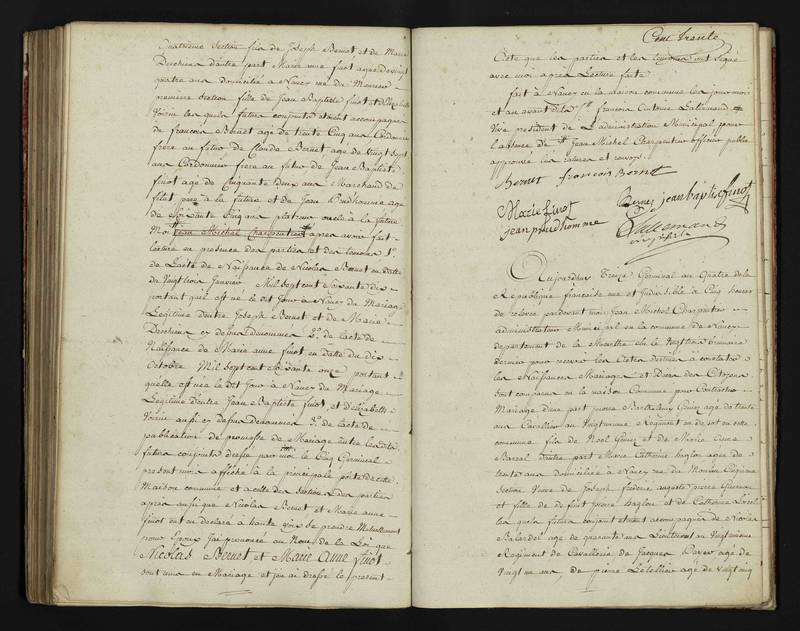 quatrieme Section fils de Joseph Bernet et de Marie
Derchieux d'autre part Marie anne finot agée de vingt
quatre ans domiciliée à Nancy rue du Moureau
premiere Section fille de Jean Baptiste finot et d'Elizabeth
Voirin les quels futurs conjoints étoient accompagnés
de francois Bernet agé de trente Cinq ans Cordonnier
frere au futur de Claude Bernet agé de vingt Sept
ans Cordonnier frere au futur de Jean Baptiste
finot agé de Cinquante deux ans Marchand de
filet pere à la future et de Jean Prudhomme age
de Soixante Cinq ans platrier oncle à la future
Moi Jean Michel Charpentier après avoir fait
lecture en presence des parties et des temoins 1°.
de l'acte de Naissance de Nicolas Bernet en datte
du Vingt trois Janvier Mil Sept cent Soixante dix
portant qu'il est né le dit Jour à Nancy du Mariage
Légitime d'entre Joseph Bernet et de Marie
Derchieux cy dessus denommés 2°. de l'acte de
Naissance de Marie anne finot en datte du dix
Octobre Mil Sept cent Soixante onze portant
qu'elle est née le dit Jour à Nancy du Mariage
Légitime d'entre Jean Baptiste finot, et d'Elizabeth
Voirin aussi cy dessus denommés 3°. de l'acte de
publication de promesse de Mariage entre lesdits
futurs conjoints dressé par moi le Cinq Germinal
present mois affiché à la principale porte de cette
Maison commune et a celle des Sections des parties
après aussi que Nicolas Bernet et Marie anne
finot ont eu déclaré à haute voix se prendre Mutuellement
pour Epoux J'ai prononcé au Nom de la Loi que
Nicolas Bernet et Marie Anne finot
sont unis en Mariage et j'en ai dressé le present
Cent trente
Acte que les parties et les temoins ont Signé
avec moi après Lecture faite
fait à Nancy en la maison commune les jour mois
et an avant dits francois Antoine Lallemand
Vice président de L'administration Municipal pour
l'absence de Jean Michel Charpentier officier public
approuvé les ratures et renvoys
Bernet francois Bernet
Marie finot Bernet jean baptiste finot
jean prudhomme Lallemand
vice présidt
Aujourdhui treize Germinal an Quatre de la
République francaise une et Indivisible à Cinq heures
de relevée pardevant moi Jean Michel Charpentier
administrateur Municipal en la commune de Nancy
departement de la Meurthe elu le Vingt trois brumaire
dernier pour recevoir les Actes destinés à constater
les Naissances Mariages et Décès des Citoyens
Sont comparus en la maison Commune pour Contracter
Mariage d'une part agé de trente
ans Cavalier au Vingtunieme Régiment en depot en cette
commune fils de Noel et de Marie
d'autre part Marie Catherine haglon agée de
trente ans domiciliée à Nancy rue du
Section Veuve de Joseph frederic auguste pierre
et fille de defunt pierre haglon et de Catherine
les quels futurs conjoints étoient accompagnés de Nicolas
Belardel agé de quarante ans Lieutenant au Vingtunieme
Régiment de Cavallerie de Jacques agé de
Vingt un ans, de pierre Letellier agé de vingt cinq